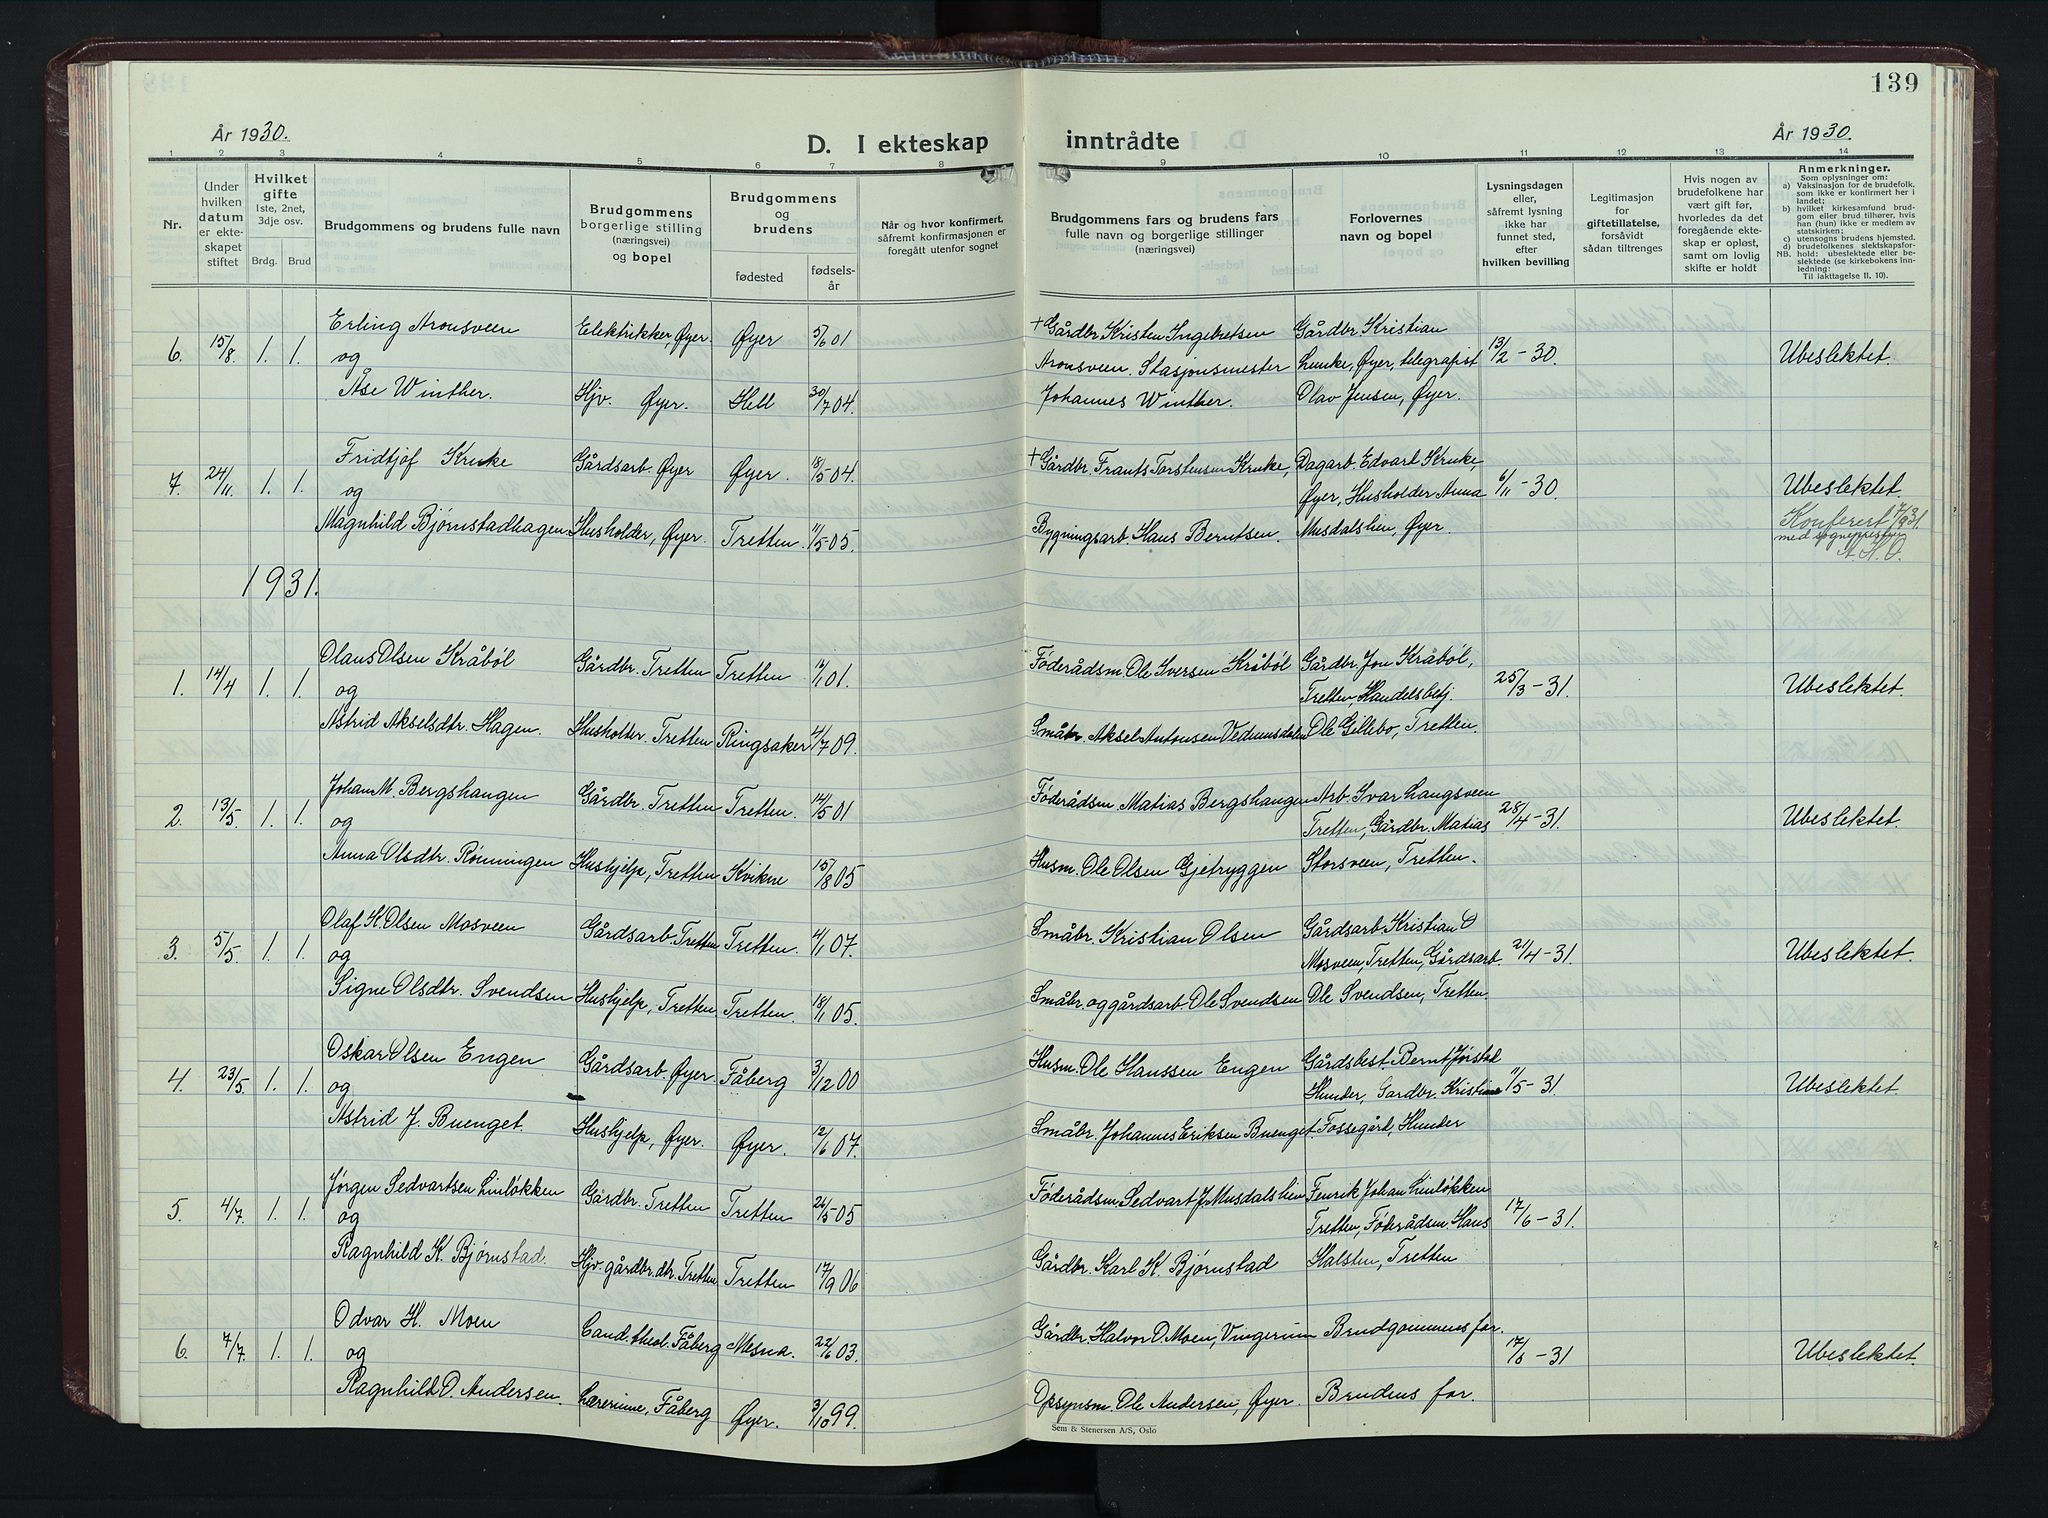 139
År 1930.
D. I ekteskap inntrådte
År 1930.
1 2 3 4 5 6 7 8 9 10 11 12 13 14
Nr.
Under hvilken datum er ekteskapet stiftet
Hvilket gifte 1ste, 2net, 3dje osv.
Brdg. Brud
Brudgommens og brudens fulle navn
Brudgommens borgerlige stilling (næringsvei) og bopel
Brudgommens og brudens
fødested
fødselsår
Når og hvor konfirmert, såfremt konfirmasjonen er foregått utenfor sognet
Brudgommens fars og brudens fars fulle navn og borgerlige stillinger (næringsvei)
Forlovernes navn og bopel
Lysningsdagen eller, såfremt lysning ikke har funnet sted, efter hvilken bevilling
Legitimasjon for giftetillatelse, forsåvidt sådan tiltrenges
Hvis nogen av brudefolkene har vært gift før, hvorledes da det foregående ekteskap er opløst, samt om lovlig skifte er holdt
Anmerkninger.
Som oplysninger om:
a) Vaksinasjon for de brudefolk, som ikke er konfirmert her i landet;
b) hvilket kirkesamfund brudgom eller brud tilhører, hvis han (hun) ikke er medlem av statskirken;
c) utensogns brudens hjemsted.
d) brudefolkenes slektskapsforhold: ubeslektede eller beslektede (se kirkebokens innledning:
NB. Til iakttagelse II. 10).
Erling Aronsveen Elektrikker, Øyer. Øyer 5/6 01 +Gårdbr. Kristen Ingebretsen Gårdbr. Kristian
6. 15/8. 1. 1. og Aronsveen. Stasjonsmester Lunke, Øyer, telegrafist 13/2-30. Ubeslektet.
Åse Winther. Hjv. Øyer. Hell 30/7 04. Johannes Winther. Olav Jensen, Øyer.
Fridtjof Kruke Gårdsarb. Øyer Øyer. 18/5 04. +Gårdbr. Frants Torstensen Kruke, Dagarb. Edvart Kruke,
7. 24/11. 1. 1. og Øyer, Husholder Anna 6/11-30. Ubeslektet.
Magnhild Bjørnstadhagen Husholder, Øyer. Tretten. 11/5 05. Bygningsarb. Hans Berntsen. Musdalslien, Øyer. Konferert 17/9 31
med
A. H. O.
1931.
Olaus Olsen Kråbøl Gårdbr. Tretten Tretten 12/1 01. Føderådsm. Ole Iversen Kråbøl Gårdbr. Jon Kråbøl,
1. 14/4 1. 1. og Tretten, Handelsbetj. 25/3-31. Ubeslektet.
Astrid Akselsdtr. Hagen. Husholder. Tretten Ringsaker 4/7 09. Småbr. Aksel Antonsen Vedumsdalen Ole Gillebo, Tretten.
Johan M. Bergshangen Gårdbr. Tretten Tretten. 14/5 01 Føderådsm. Matias Bergshangen Arb. Ivar Langsveen
2. 13/5. 1. 1. og Tretten, Gårdbr. Matias 28/4-31. Ubeslektet.
Anna Olsdtr. Rønningen Hushjelp, Tretten Kvikne 15/8 05 Husm. Ole Olsen Gjetryggen Storsveen, Tretten.
Olaf K. Olsen Mosveen Gårdsarb. Tretten Tretten. 4/1 07. Småbr. Kristian Olsen Gårdsarb. Kristian O
3. 5/5. 1. 1. og Mosveen, Tretten, Gårdsarb. 21/4-31. Ubeslektet.
Signe Olsdtr. Svendsen Hushjelp, Tretten. Tretten. 18/1 05. Småbr. og gårdsarb. Ole Svendsen Ole Svendsen, Tretten.
Oskar Olsen Engen Gårdsarb. Øyer Fåberg 3/12 00 Husm. Ole Hanssen Engen Gårdsbest. Bernt Jørstad
4. 23/5. 1. 1. og Hunder, Gardbr. Kristian 11/5-31 Ubeslektet.
Astrid J. Buenget. Hushjelp, Øyer. Øyer. 12/6 07. Småbr. Johannes Eriksen Buenget. Fossegård, Hunder
Jørgen Sedvartsen Linløkken Gårdbr. Tretten Tretten 26/5 05 Føderådsm. Sedvart J. Musdalslien Fenrik Johan Linløkken
5. 4/7. 1. 1. og Tretten, Føderådsm. Hans 17/6-31.
Ragnhild K. Bjørnstad. Hjv. gårdbr. dtr. Tretten Tretten 17/9 06 Gårdbr. Karl K. Bjørnstad Halsten, Tretten
Odvar H. Moen Cand. theol. Fåberg Mesna. 22/6 03. Gårdbr. Halvor O. Moen, Vingerum Brudgommens far.
6. 7/7. 1. 1. og 17/6-31 Ubeslektet.
Ragnhild O. Andersen. Lærerinne, Fåberg Øyer. 3/10 99. Opsynsm. Ole Andersen, Øyer. Brudens far.
Sem & Stenersen A/S, Oslo